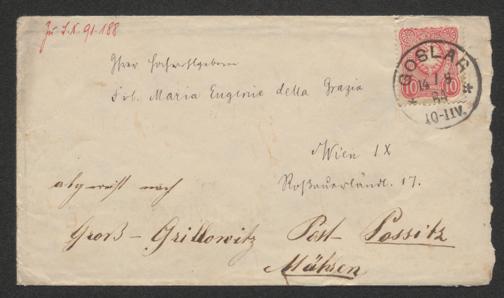 Zu I.N. 91.188
Ihrer Hochwohlgeboren
Frl. Maria Eugenie della Grazia
Wien IX
Roßauerländ. 17.
abgereist nach
Groß-Grillowitz Post-Possitz
Mähren
GOSLAR
10 10